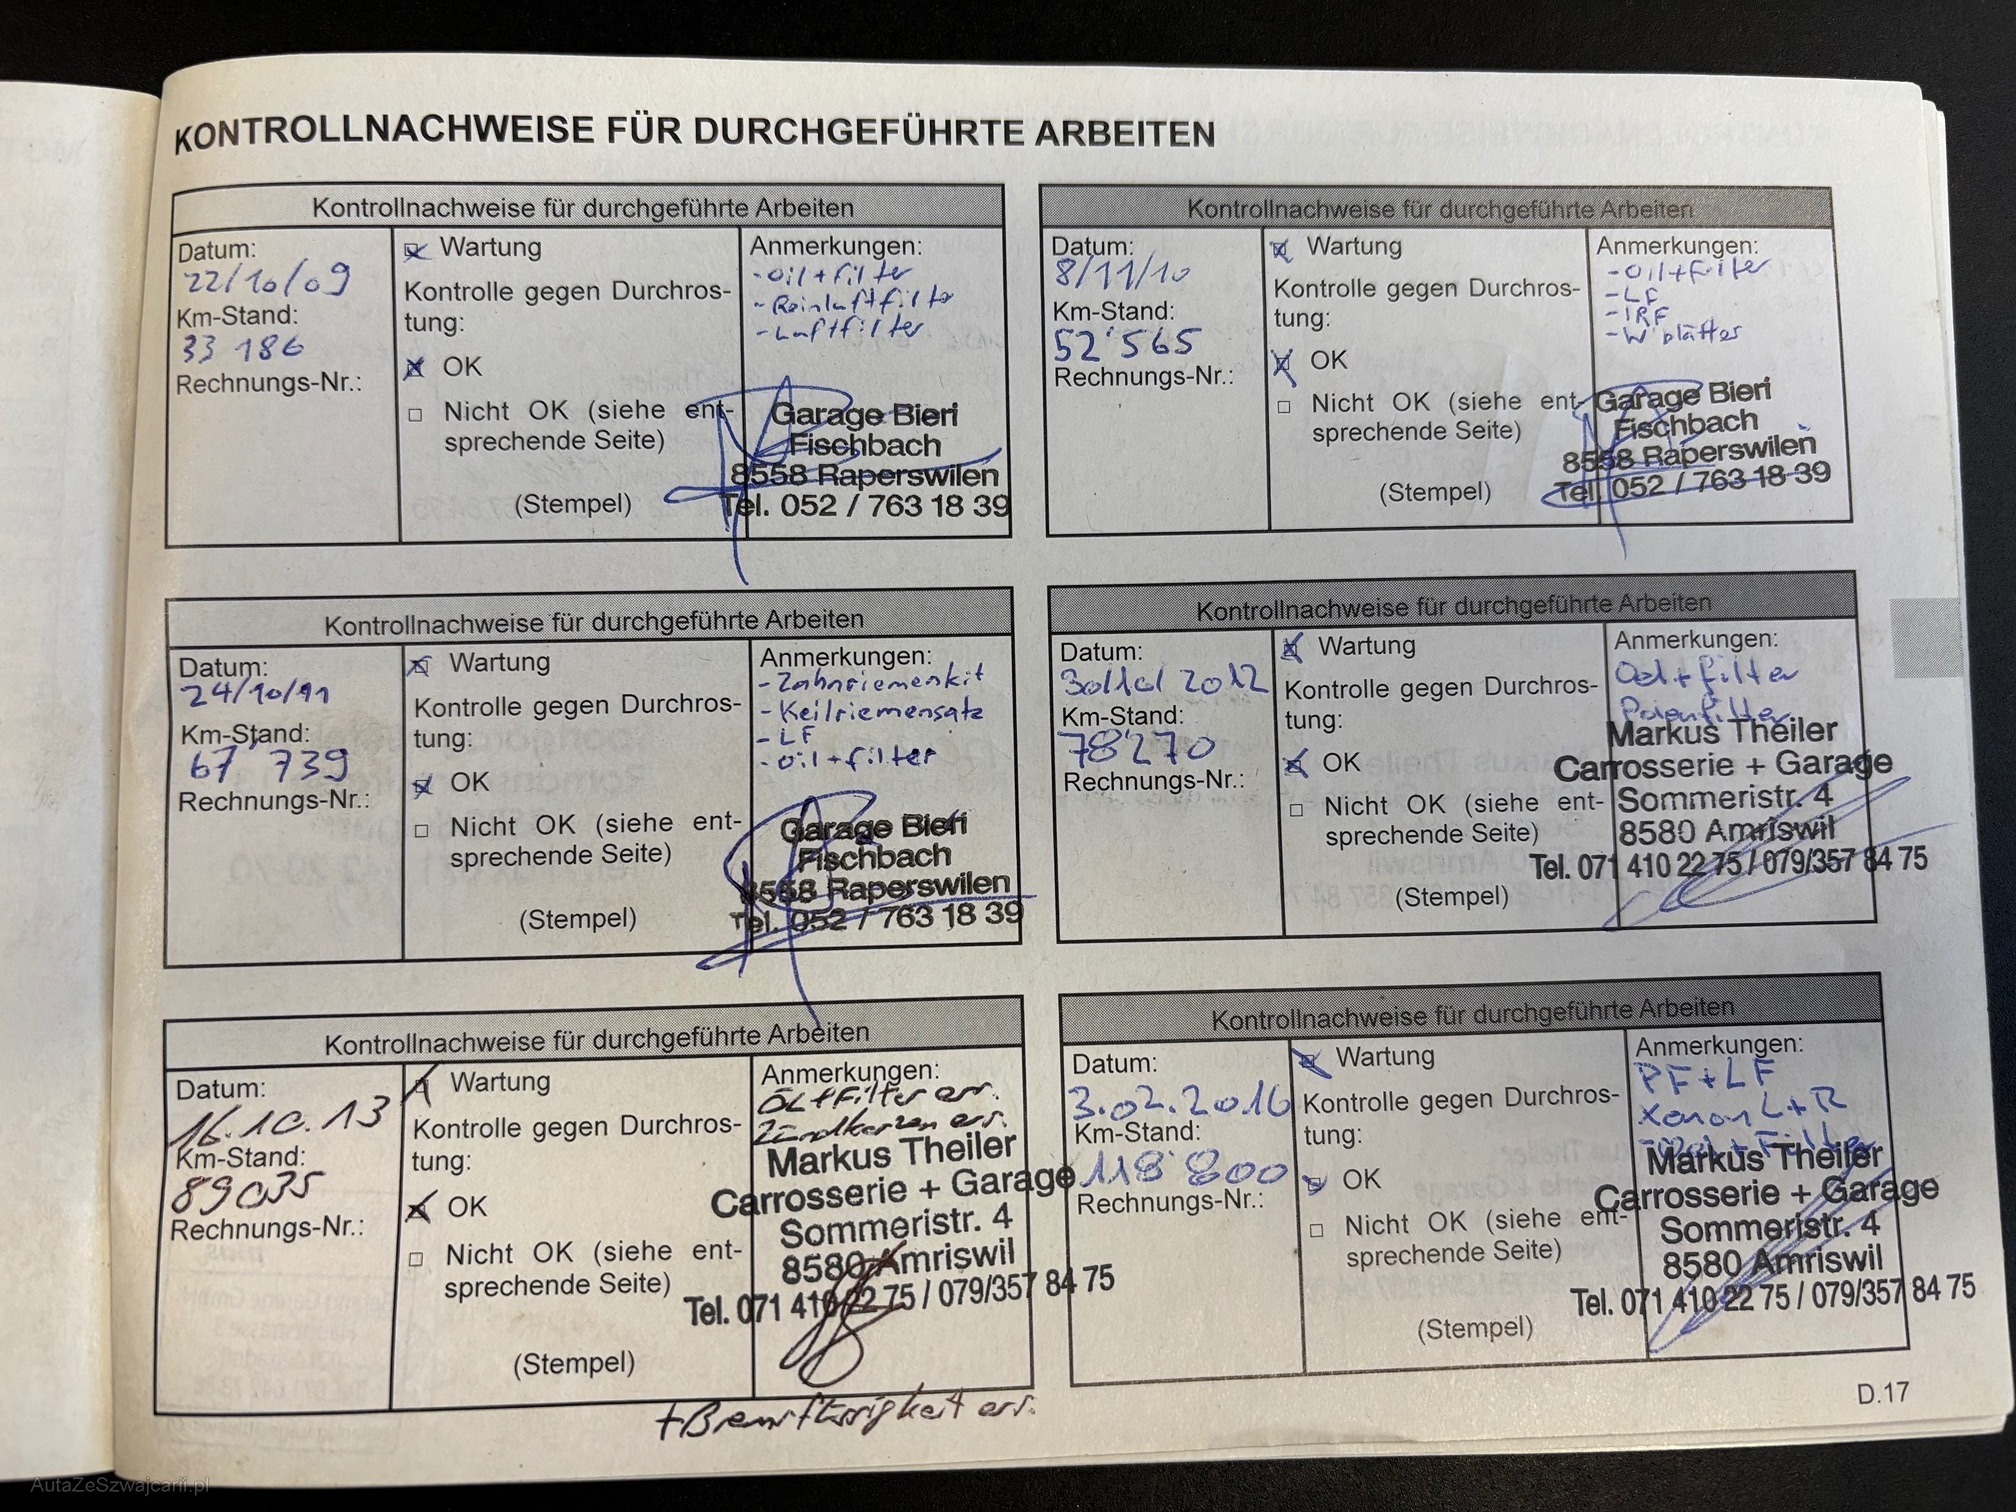 KONTROLLNACHWEISE FÜR DURCHGEFÜHRTE ARBEITEN
Kontrollnachweise für durchgeführte Arbeiten
Datum:
22/10/09
Km-Stand:
33 186
Rechnungs-Nr.:
Wartung
Kontrolle gegen Durchros-
tung:
OK
Nicht OK (siehe ent-
sprechende Seite)
(Stempel)
Anmerkungen:
-Oil+Filter
-Reinluftfilter
-Luftfilter
Garage Bieri
Fischbach
8558 Raperswilen
Tel. 052 / 763 18 39
Kontrollnachweise für durchgeführte Arbeiten
Datum:
8/11/10
Km-Stand:
52'565
Rechnungs-Nr.:
Wartung
Kontrolle gegen Durchros-
tung:
OK
Nicht OK (siehe ent-
sprechende Seite)
(Stempel)
Anmerkungen:
-Oil+Filter
-LF
-IRF
-W'blätter
Garage Bieri
Fischbach
8558 Raperswilen
Tel. 052 / 763 18 39
Kontrollnachweise für durchgeführte Arbeiten
Datum:
24/10/11
Km-Stand:
67'739
Rechnungs-Nr.:
Wartung
Kontrolle gegen Durchros-
tung:
OK
Nicht OK (siehe ent-
sprechende Seite)
(Stempel)
Anmerkungen:
-Zahnriemenkit
-Keilriemensatz
-LF
-Oil+Filter
Garage Bieri
Fischbach
8558 Raperswilen
Tel. 052 / 763 18 39
Kontrollnachweise für durchgeführte Arbeiten
Datum:
30/10/2012
Km-Stand:
78'270
Rechnungs-Nr.:
Wartung
Kontrolle gegen Durchros-
tung:
OK
Nicht OK (siehe ent-
sprechende Seite)
(Stempel)
Anmerkungen:
Oel+Filter
Polenfilter
Markus Theiler
Carrosserie + Garage
Sommeristr. 4
8580 Amriswil
Tel. 071 410 22 75 / 079/357 84 75
Kontrollnachweise für durchgeführte Arbeiten
Datum:
16.10.13
Km-Stand:
89035
Rechnungs-Nr.:
Wartung
Kontrolle gegen Durchros-
tung:
OK
Nicht OK (siehe ent-
sprechende Seite)
(Stempel)
Anmerkungen:
Öl+Filter err.
Zündkerzen err.
Markus Theiler
Carrosserie + Garage
Sommeristr. 4
8580 Amriswil
Tel. 071 410 22 75 / 079/357 84 75
+Bremsflüssigkeit err.
Kontrollnachweise für durchgeführte Arbeiten
Datum:
3.02.2016
Km-Stand:
118'800
Rechnungs-Nr.:
Wartung
Kontrolle gegen Durchros-
tung:
OK
Nicht OK (siehe ent-
sprechende Seite)
(Stempel)
Anmerkungen:
PF+LF
Xenon L+R
Oel+Filter
Markus Theiler
Carrosserie + Garage
Sommeristr. 4
8580 Amriswil
Tel. 071 410 22 75 / 079/357 84 75
D.17
AutaZeSzwajcarii.pl